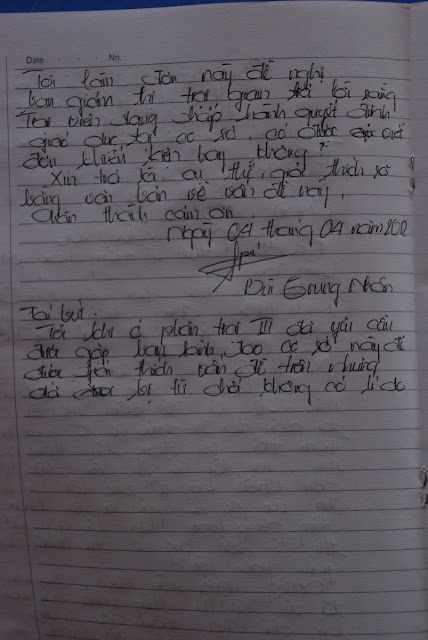 Date . . . No.
Tôi làm đơn này đề nghị
ban giám thị trại giam trả lời rằng
Trại viên đang chấp hành quyết định
giáo dục tại cơ sở, có được gửi
đơn khiếu kiện hay không?
Xin trả lời cụ thể, giải thích rõ
bằng văn bản về vấn đề này.
Chân thành cảm ơn.
Ngày 04 tháng 04 năm 2012
Bùi Trung Nhân
Tái bút:
Tôi khi ở phân trại III đã yêu cầu
được gặp ban lãnh đạo cơ sở này để
được giải thích vấn đề trên nhưng
đã bị từ chối không có lí do